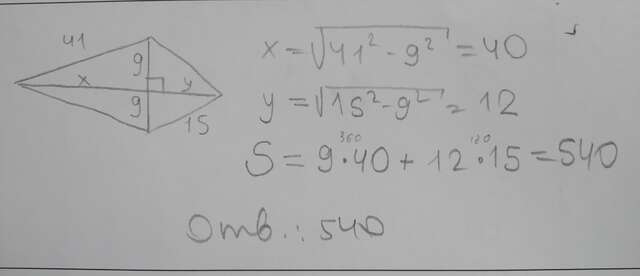 41
9
x
y
9
15
x = √41² - 9² = 40
y = √15² - 9² = 12
360 180
S = 9·40 + 12·15 = 540
Отв.: 540